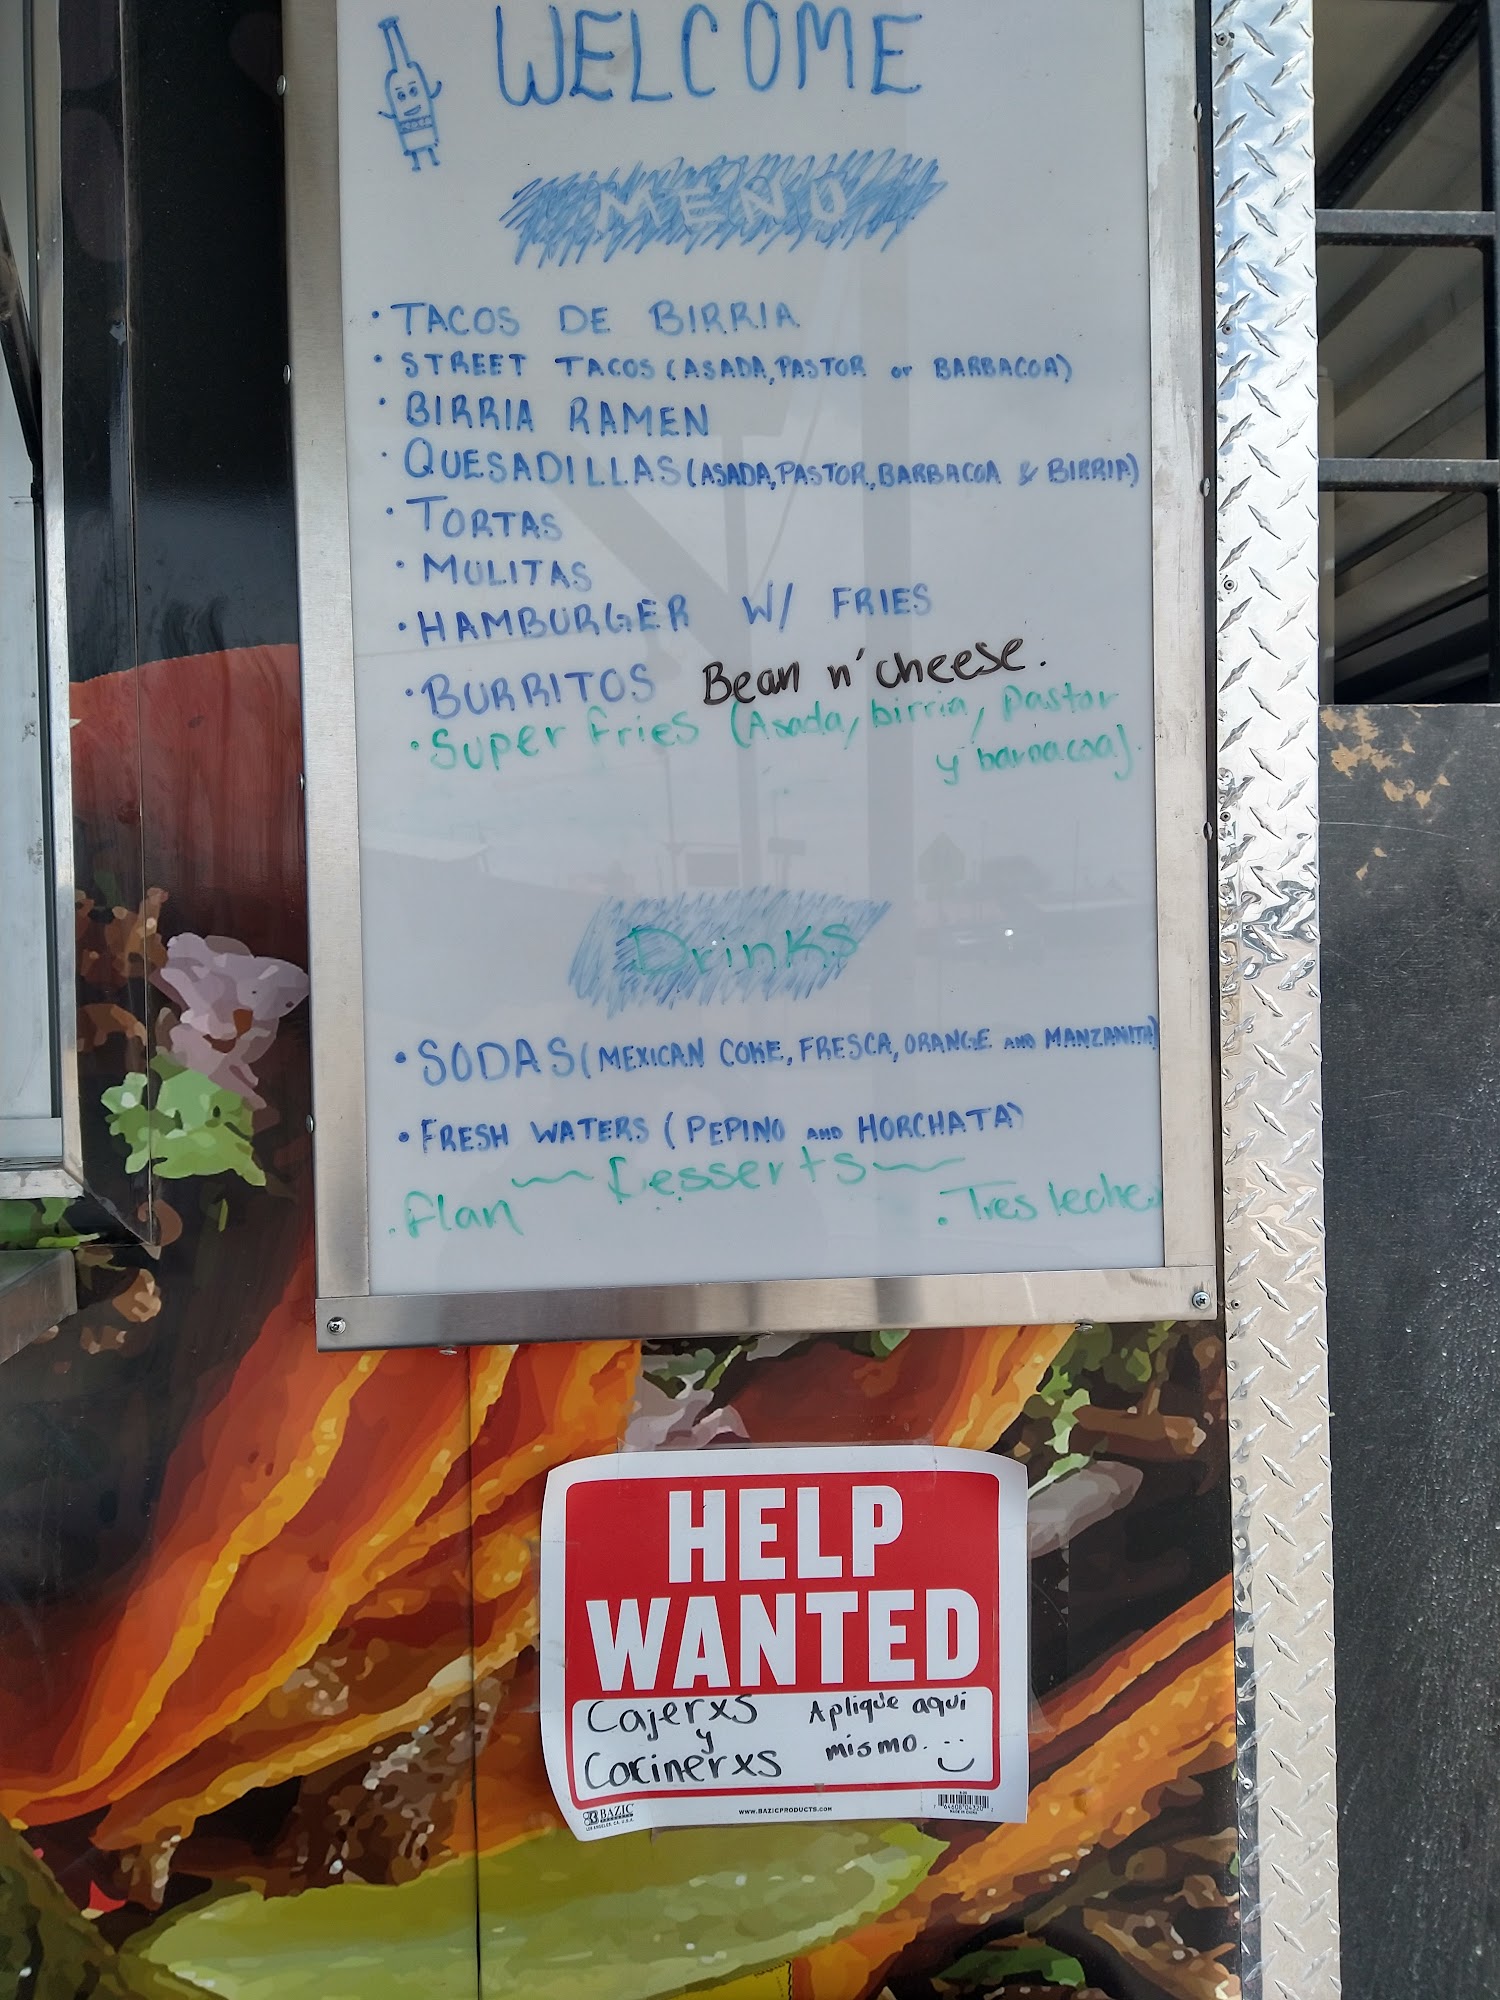 WELCOME
MENU
• TACOS DE BIRRIA
• STREET TACOS (ASADA, PASTOR or BARBACOA)
• BIRRIA RAMEN
• QUESADILLAS (ASADA, PASTOR, BARBACOA & BIRRIA)
• TORTAS
• MULITAS
• HAMBURGER W/ FRIES
• BURRITOS Bean n' cheese.
• Super fries (Asada, birria, pastor
y barbacoa).
Drinks
• SODAS (MEXICAN COKE, FRESCA, ORANGE AND MANZANITA)
• FRESH WATERS (PEPINO AND HORCHATA)
~ Desserts ~
• flan
• Tres leches
HELP
WANTED
Cajerxs
y
Cocinerxs
Aplique aquí
mismo.
BAZIC
LOS ANGELES, CA, U.S.A.
WWW.BAZICPRODUCTS.COM